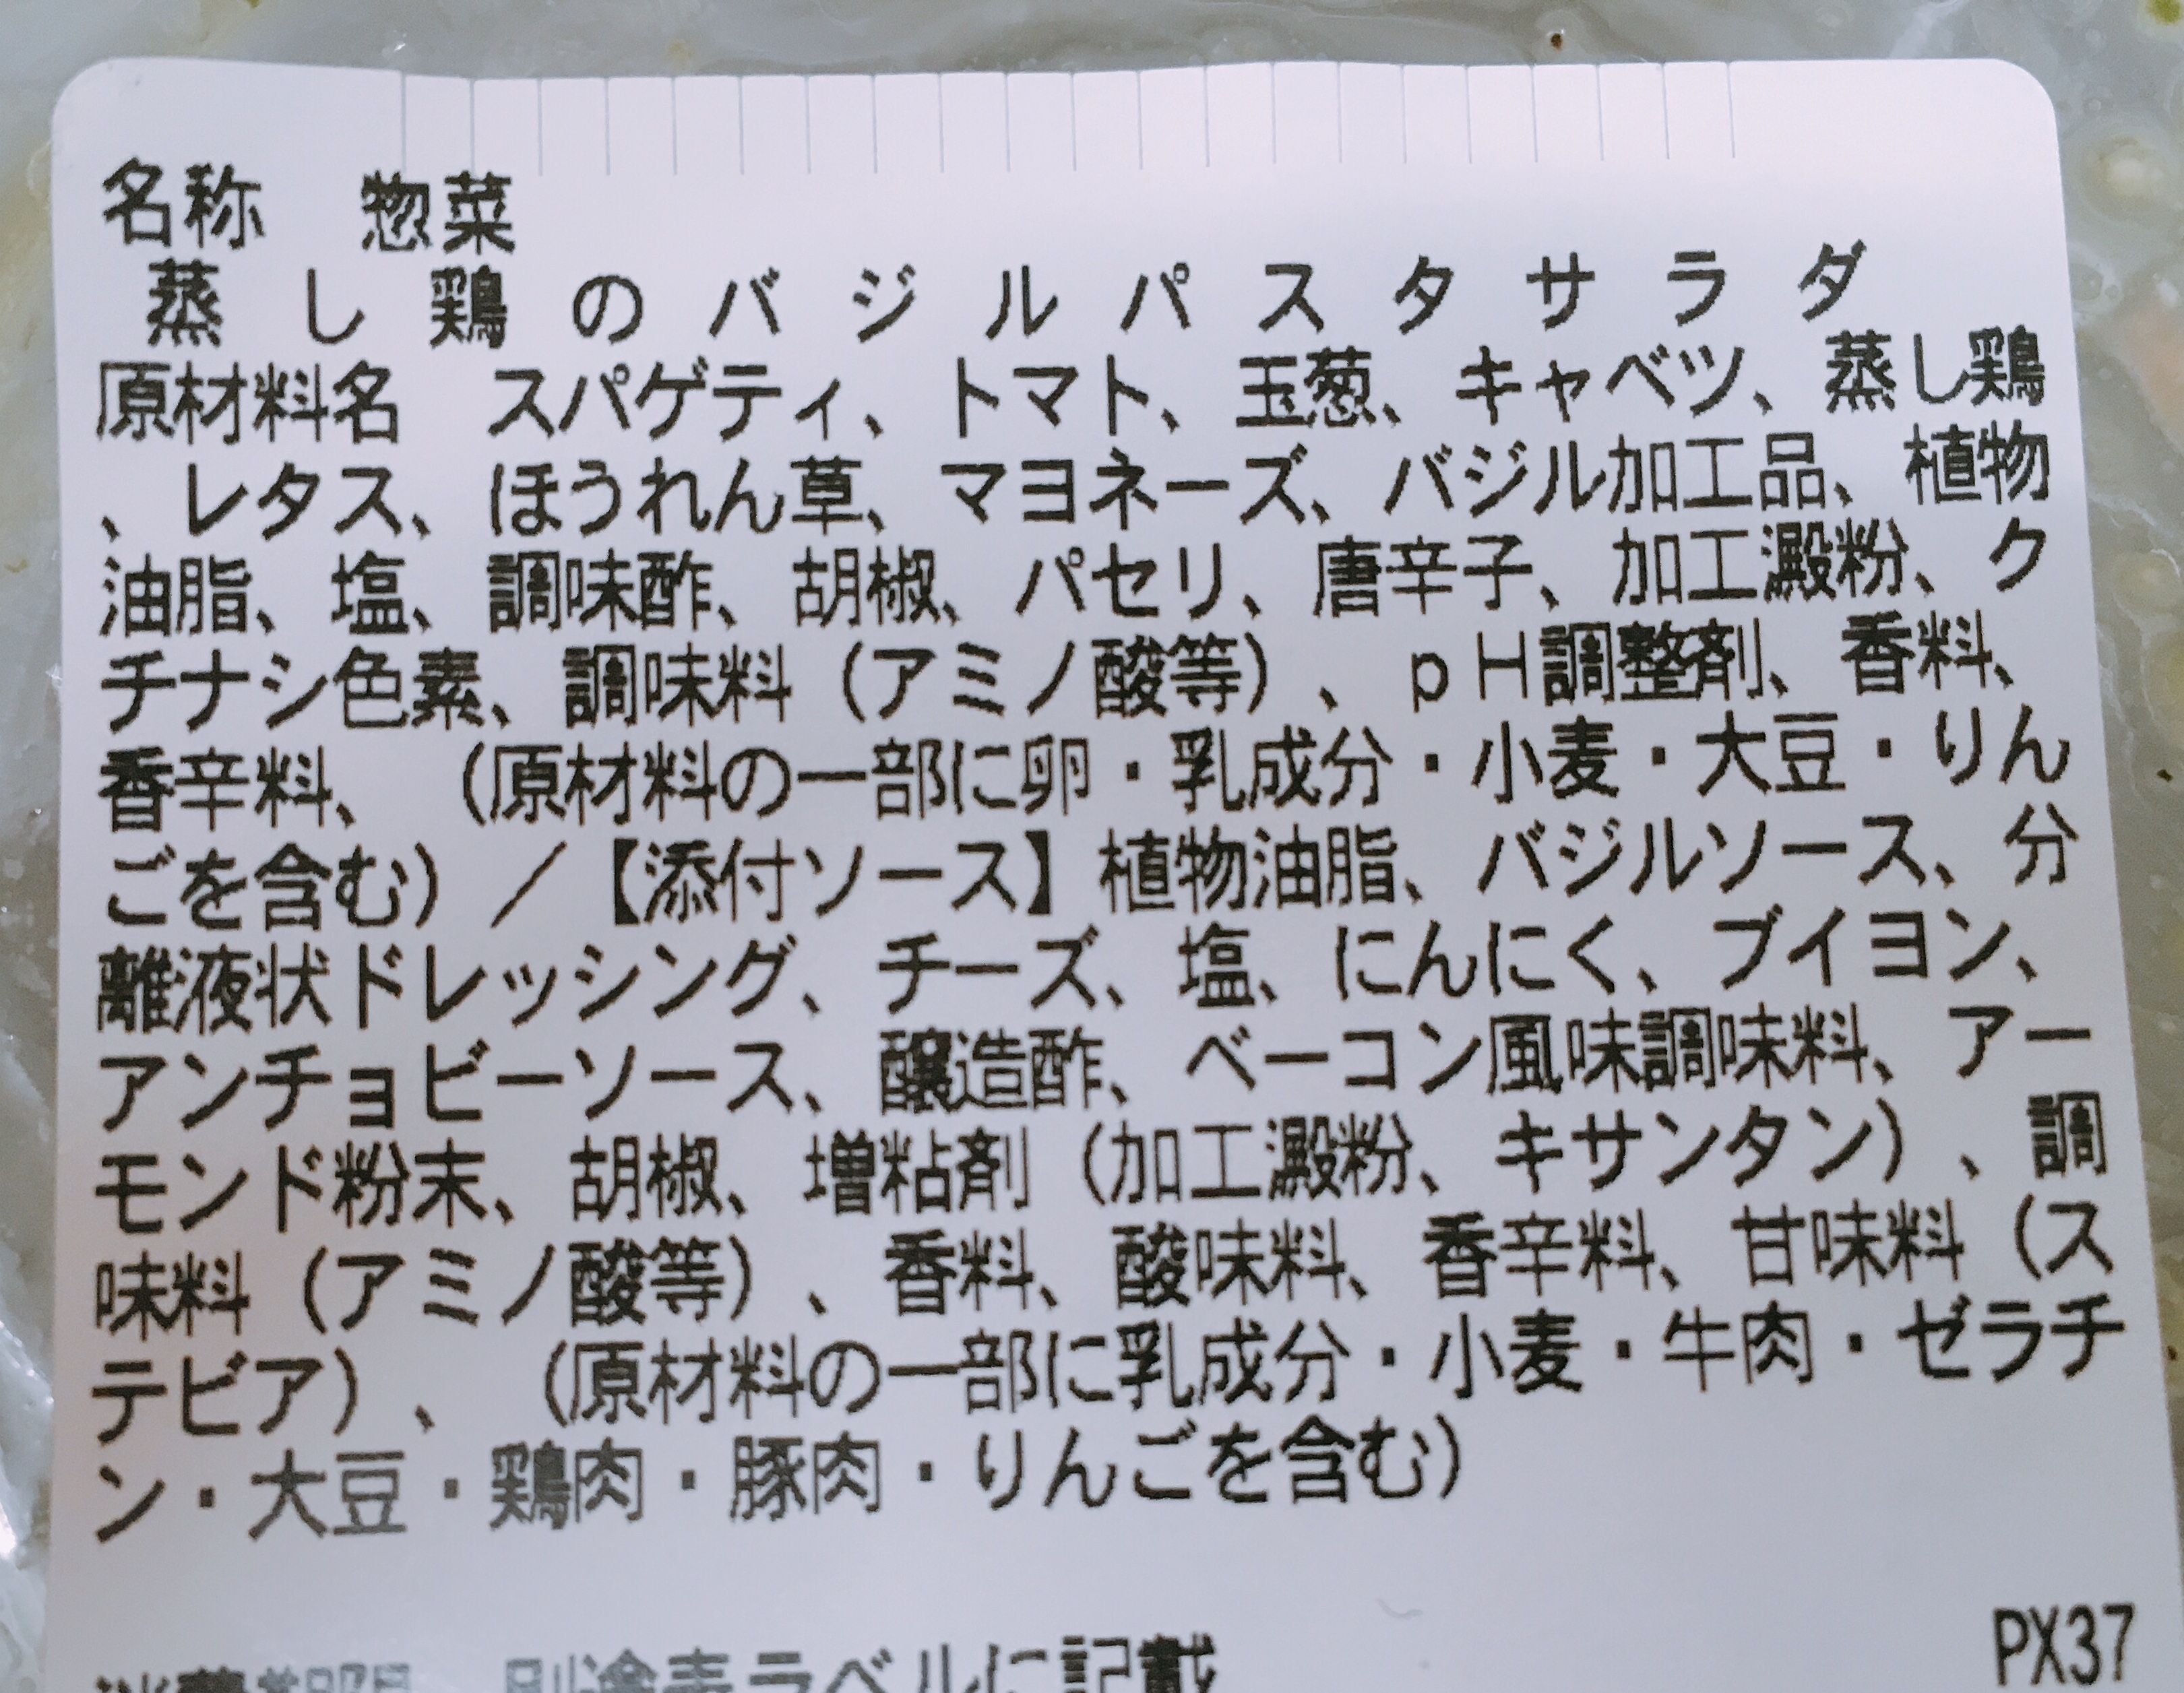 名称　惣菜
蒸し鶏のバジルパスタサラダ
原材料名　スパゲティ、トマト、玉葱、キャベツ、蒸し鶏
、レタス、ほうれん草、マヨネーズ、バジル加工品、植物
油脂、塩、調味酢、胡椒、パセリ、唐辛子、加工澱粉、ク
チナシ色素、調味料（アミノ酸等）、ｐＨ調整剤、香料、
香辛料、（原材料の一部に卵・乳成分・小麦・大豆・りん
ごを含む）／【添付ソース】植物油脂、バジルソース、分
離液状ドレッシング、チーズ、塩、にんにく、ブイヨン、
アンチョビーソース、醸造酢、ベーコン風味調味料、アー
モンド粉末、胡椒、増粘剤（加工澱粉、キサンタン）、調
味料（アミノ酸等）、香料、酸味料、香辛料、甘味料（ス
テビア）、（原材料の一部に乳成分・小麦・牛肉・ゼラチ
ン・大豆・鶏肉・豚肉・りんごを含む）
PX37
消費期限　別途表ラベルに記載